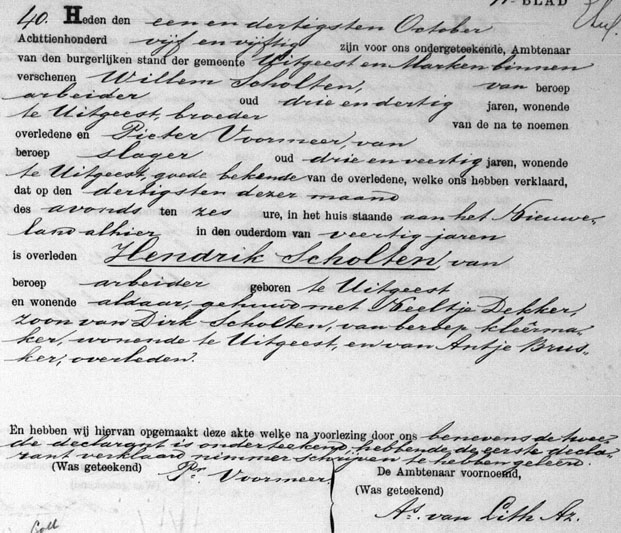 BLAD
40. Heden den een en dertigsten October
Achttienhonderd vijf en vijftig zijn voor ons ondergeteekende, Ambtenaar
van den burgerlijken stand der gemeente Uitgeest en Markenbinnen
verschenen Willem Scholten, van beroep
arbeider oud drie en dertig jaren, wonende
te Uitgeest, broeder van de na te noemen
overledene en Pieter Voormeer, van
beroep slager oud drie en veertig jaren, wonende
te Uitgeest, goede bekende van de overledene, welke ons hebben verklaard,
dat op den dertigsten dezer maand
des avonds ten zes ure, in het huis staande aan het Nieuwe-
land alhier in den ouderdom van veertig jaren
is overleden Hendrik Scholten, van
beroep arbeider geboren te Uitgeest
en wonende aldaar, gehuwd met Neeltje Dekker,
zoon van Dirk Scholten, van beroep kleêrma-
ker, wonende te Uitgeest, en van Antje Brus-
ker, overleden.
En hebben wij hiervan opgemaakt deze akte welke na voorlezing door ons benevens de twee-
de declarant is onderteekend, hebbende de eerste decla-
rant verklaard nimmer schrijven te hebben geleerd.
(Was geteekend) Pr. Voormeer
De Ambtenaar voornoemd,
(Was geteekend)
As. van Lith Az.